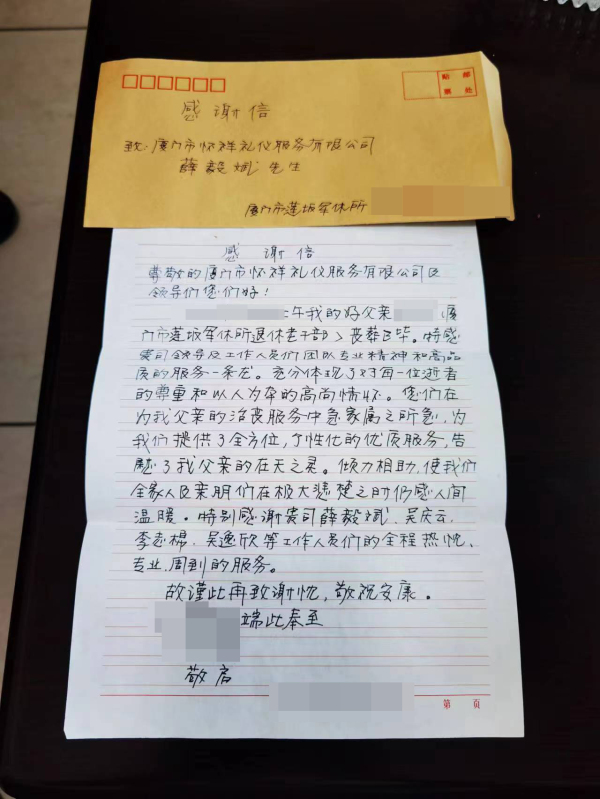 贴 邮
票 处
感 谢 信
致：厦门市怀祥礼仪服务有限公司
薛毅斌先生
厦门市莲坂军休所
感 谢 信
尊敬的厦门市怀祥礼仪服务有限公司及
领导们您们好！
午我的好父亲 （厦
门市莲坂军休所退休老干部）丧葬已毕。特感
贵司领导及工作人员们团队专业精神和高品
质的服务一条龙。充分体现了对每一位逝者
的尊重和以人为本的高尚情怀。您们在
为我父亲的治丧服务中急家属之所急，为
我们提供了全方位，个性化的优质服务，告
慰了我父亲的在天之灵。倾力相助，使我们
全家人及亲朋们在极大悲楚之时仍感人间
温暖。特别感谢贵司薛毅斌、吴庆云、
李志棉、吴逸欣等工作人员们的全程热忱、
专业、周到的服务。
故谨此再致谢忱，敬祝安康。
端此奉至
敬启
第 页